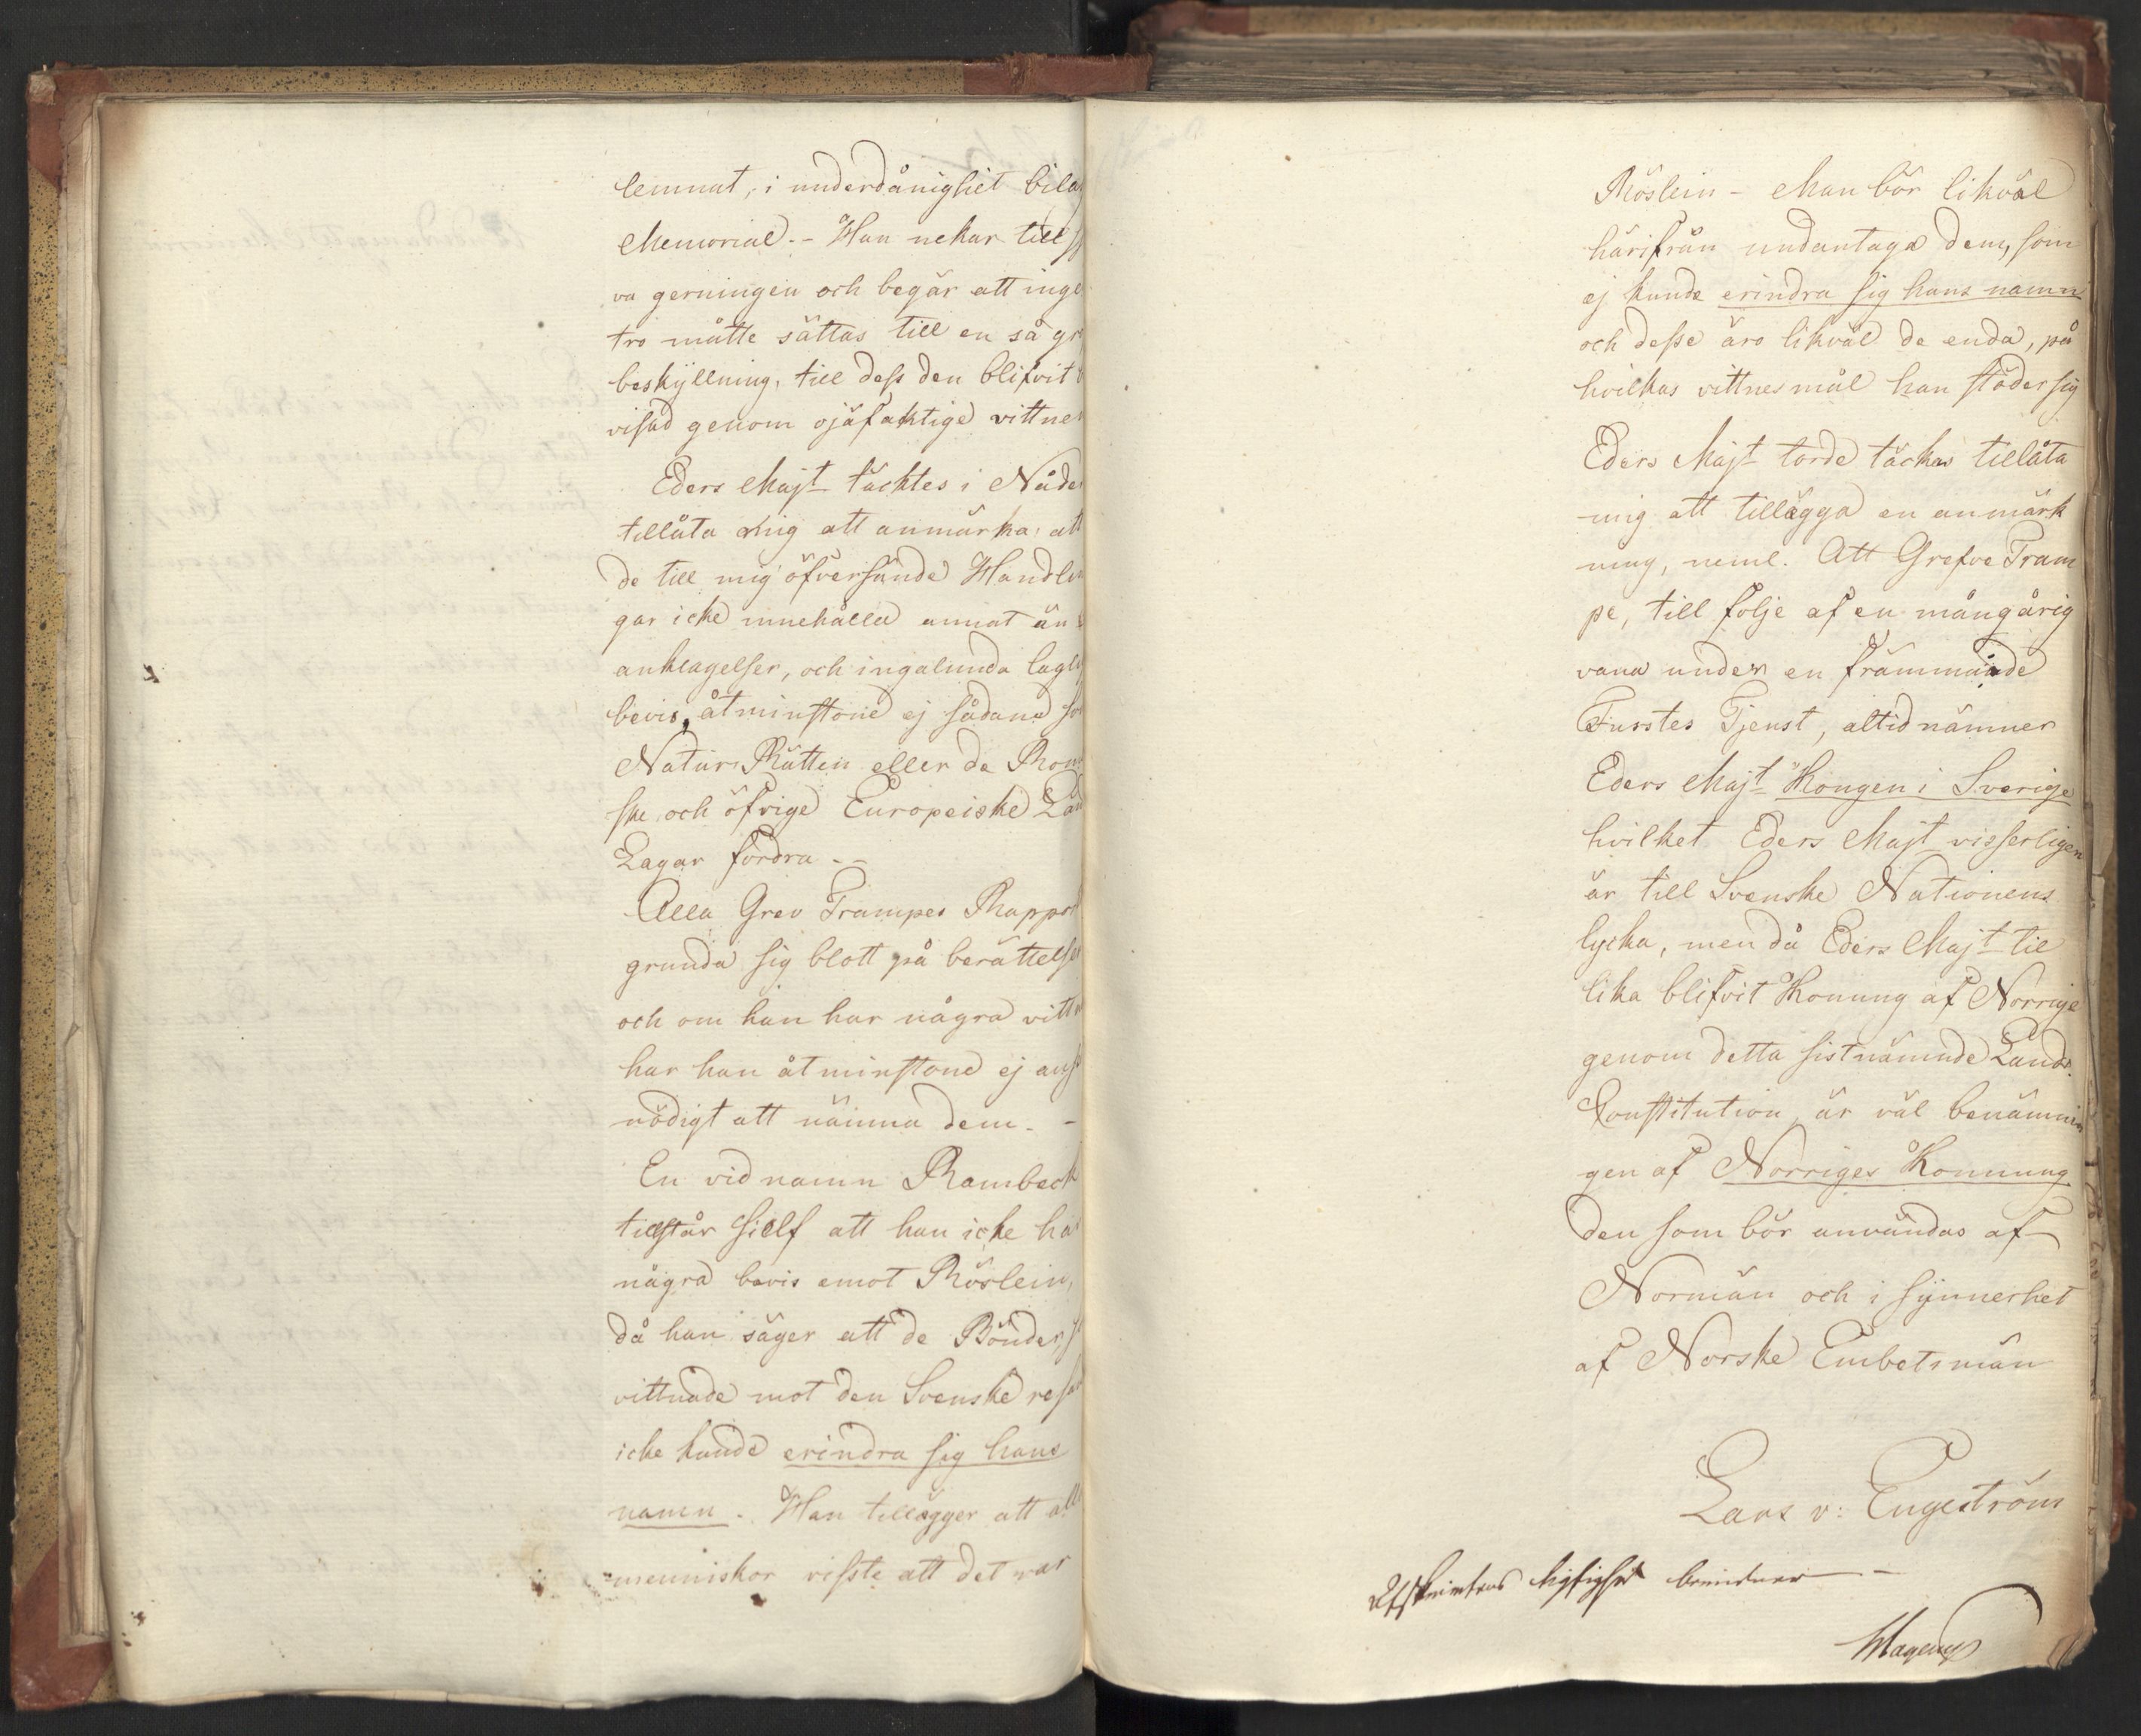 lemnat, i underdånighet bila
Memorial. - Han nekar till sj
va gerningen och begär att inge
tro måtte sättas till en så gr
beskyllning, till dess den blifvit b
visad genom ojäfaktige vittnen
Eders Majt täcktes i Nåde
tillåta mig att anmärka, att
de till mig öfversände Handlin
gar icke innehålla annat än
anklagelser, och ingalunda lagl
bevis, åtminstone ej sådane so
Naturs Rätten eller de Rom
ske och öfrige Europeiske Lan
Lagar fordra - -
Alla Grev Trampes Rapport
grunda sig blott på berättelse
och om han har några vittn
har han åtminstone ej ans
nödigt att nämna dem. -
En vid namn Rambeck
tillstår sielf att han icke ha
några bevis emot Röslein,
då han säger att de Bönder, s
vittnade mot den Svenske resa
icke kunde erindra sig hans
namn. Han tillägger att all
menniskor visste att det var
Röslein - Man bör likväl
härifrån undantaga dem, som
ej kunde erindra sig hans namn
och desse äro likväl de enda, på
hvilkas vittnesmål han stöder sig
Eders Majt torde täckas tillåta
mig att tillägga en anmärk
ning, neml. Att Grefve Tram
pe, till följe af en mångårig
vana under en främmande
Furstes Tjenst, altid nämner
Eders Majt "Kongen i Sverige
hvilket Eders Majt visserligen
är till Svenske Nationens
lycka, men då Eders Majt til
lika blifvit Konung af Norrige
genom detta sistnämnde Lands
Constitution, är väl benämnin
gen af Norriges Konnung
den som bör användas af
Normän och i synnerhet
af Norske Embetsmän
Lars v: Engeström
Afskriftens rigtighed bevidner